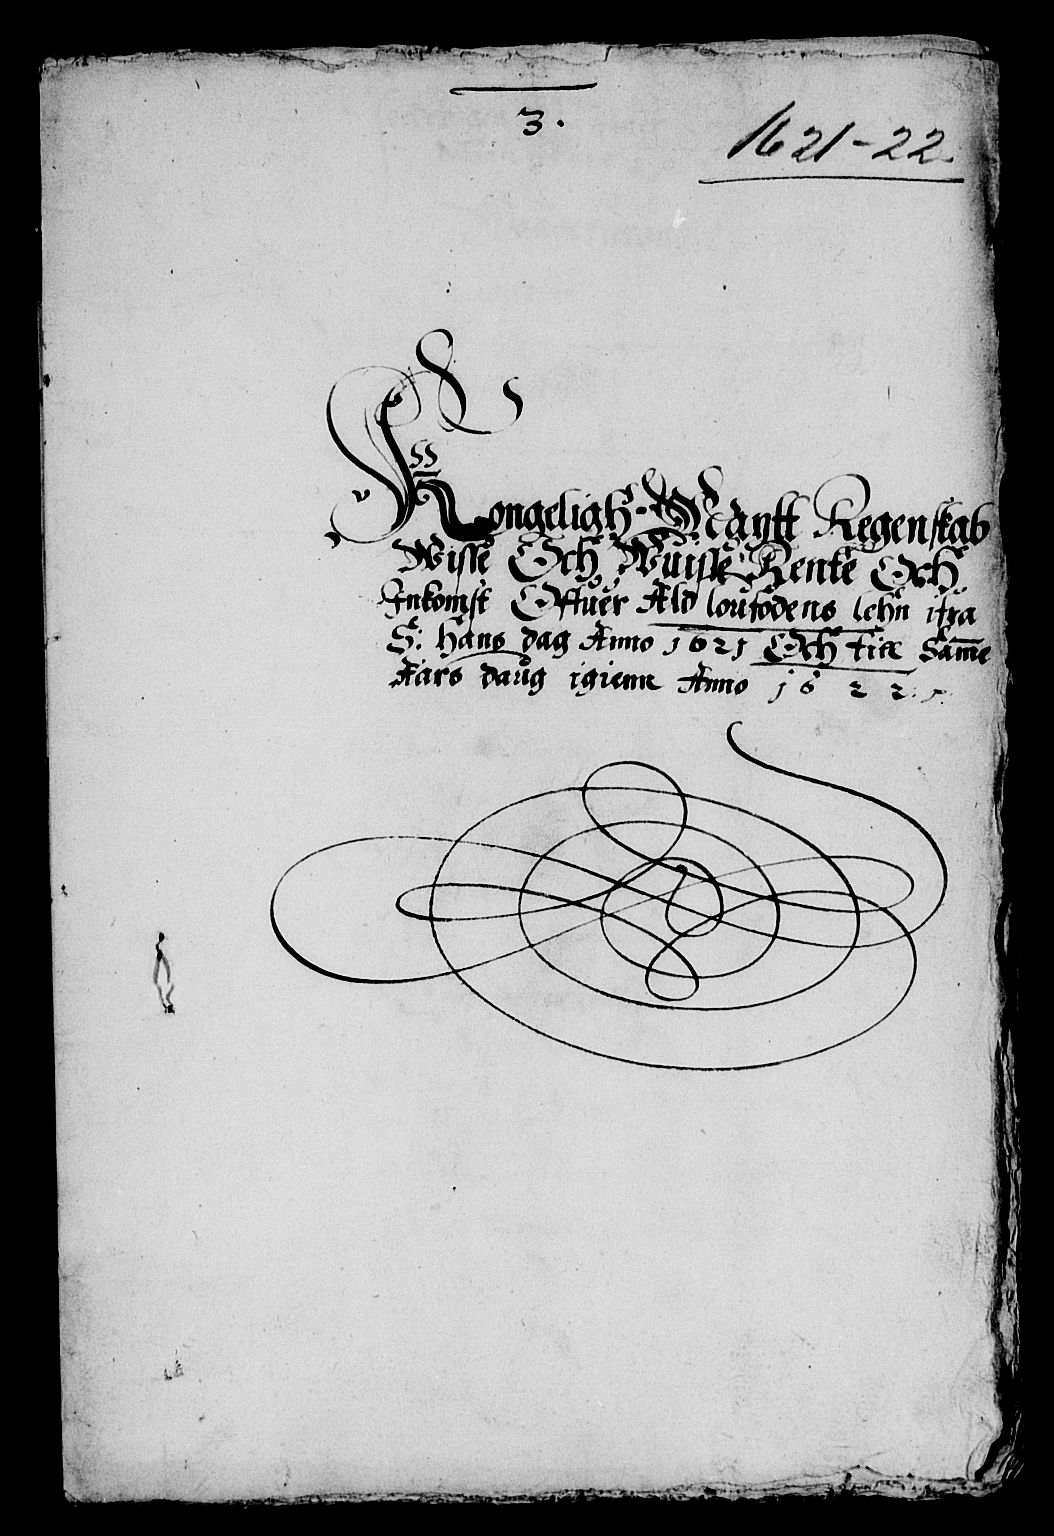 3.
1621-22.
Kongeligh Maytt Regenskab
Wisse Och Wuisse Rente Och
Inkomst Offuer Ald loufodens lehn ifra
S: Hans dag Anno 1621 Och till Samme
Aars daug igienn Anno 1622: